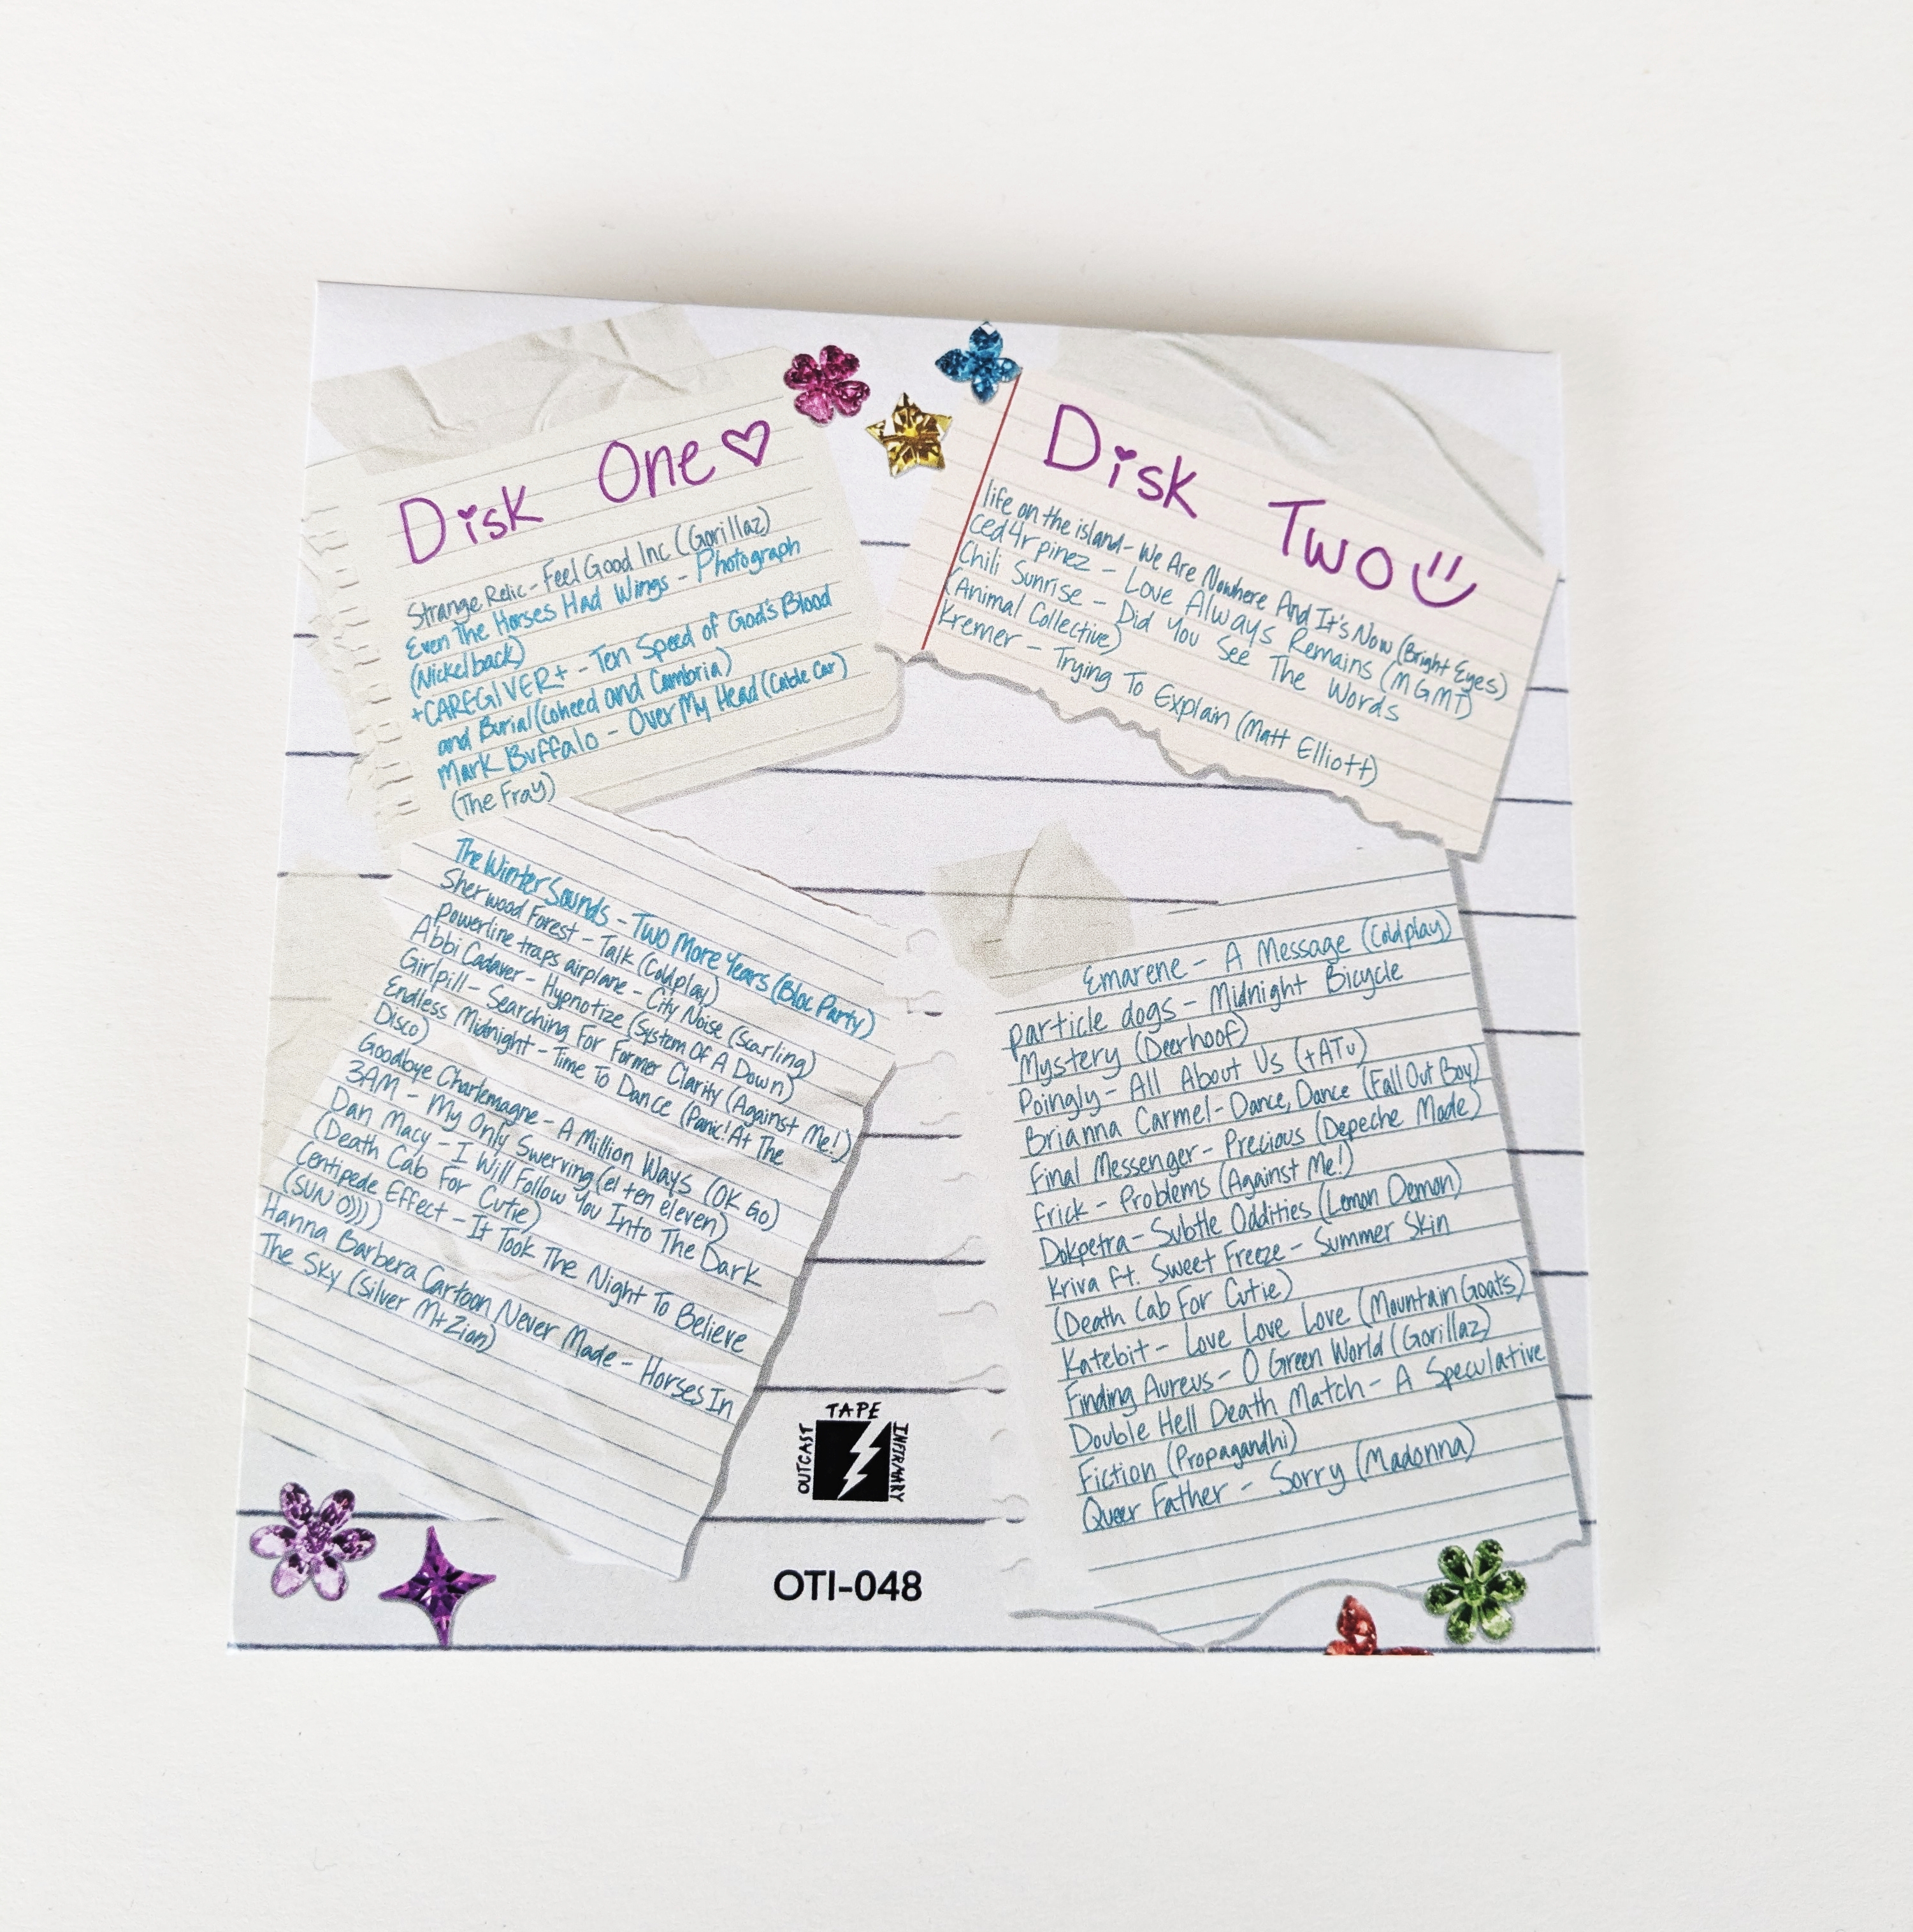 Disk One
Strange Relic - Feel Good Inc (Gorillaz)
Even The Horses Had Wings - Photograph
(Nickelback)
+CAREGIVER+ - Ten Speed of God's Blood
and Burial (Coheed and Cambria)
Mark Buffalo - Over My Head (Cable Car)
(The Fray)
The Winter Sounds - Two More Years (Bloc Party)
Sherwood Forest - Talk (Coldplay)
Powerline traps airplane - City Noise (Scarling)
Abbi Cadaver - Hypnotize (System Of A Down)
Girlpill - Searching For Former Clarity (Against Me!)
Endless Midnight - Time To Dance (Panic! At The
Disco)
Goodbye Charlemagne - A Million Ways (OK Go)
3AM - My Only Swerving (el ten eleven)
Dan Macy - I Will Follow You Into The Dark
(Death Cab For Cutie)
Centipede Effect - It Took The Night To Believe
(SUN O)))
Hanna Barbera Cartoon Never Made - Horses In
The Sky (Silver Mt Zion)
Disk Two
life on the island - We Are Nowhere And It's Now (Bright Eyes)
ced4r pinez - Love Always Remains (MGMT)
Chili Sunrise - Did You See The Words
(Animal Collective)
Kremer - Trying To Explain (Matt Elliott)
Emarene - A Message (Coldplay)
particle dogs - Midnight Bicycle
Mystery (Deerhoof)
Poingly - All About Us (tATu)
Brianna Carmel - Dance, Dance (Fall Out Boy)
Final Messenger - Precious (Depeche Mode)
frick - Problems (Against Me!)
Dokpetra - Subtle Oddities (Lemon Demon)
Kriva ft. Sweet Freeze - Summer Skin
(Death Cab For Cutie)
Katebit - Love Love Love (Mountain Goats)
Finding Aureus - O Green World (Gorillaz)
Double Hell Death Match - A Speculative
Fiction (Propagandhi)
Queer Father - Sorry (Madonna)
OUTCAST
TAPE
INFIRMARY
OTI-048